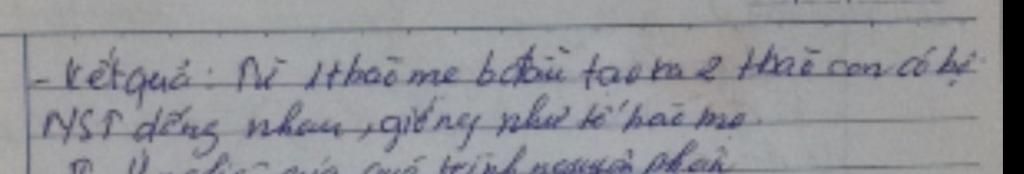 - Kết quả: Từ 1 tbào mẹ bđầu tạo ra 2 tbào con có bộ
NST đống nhau, giống như tế bào mẹ.
II. Ý nghĩa của quá trình nguyên phân